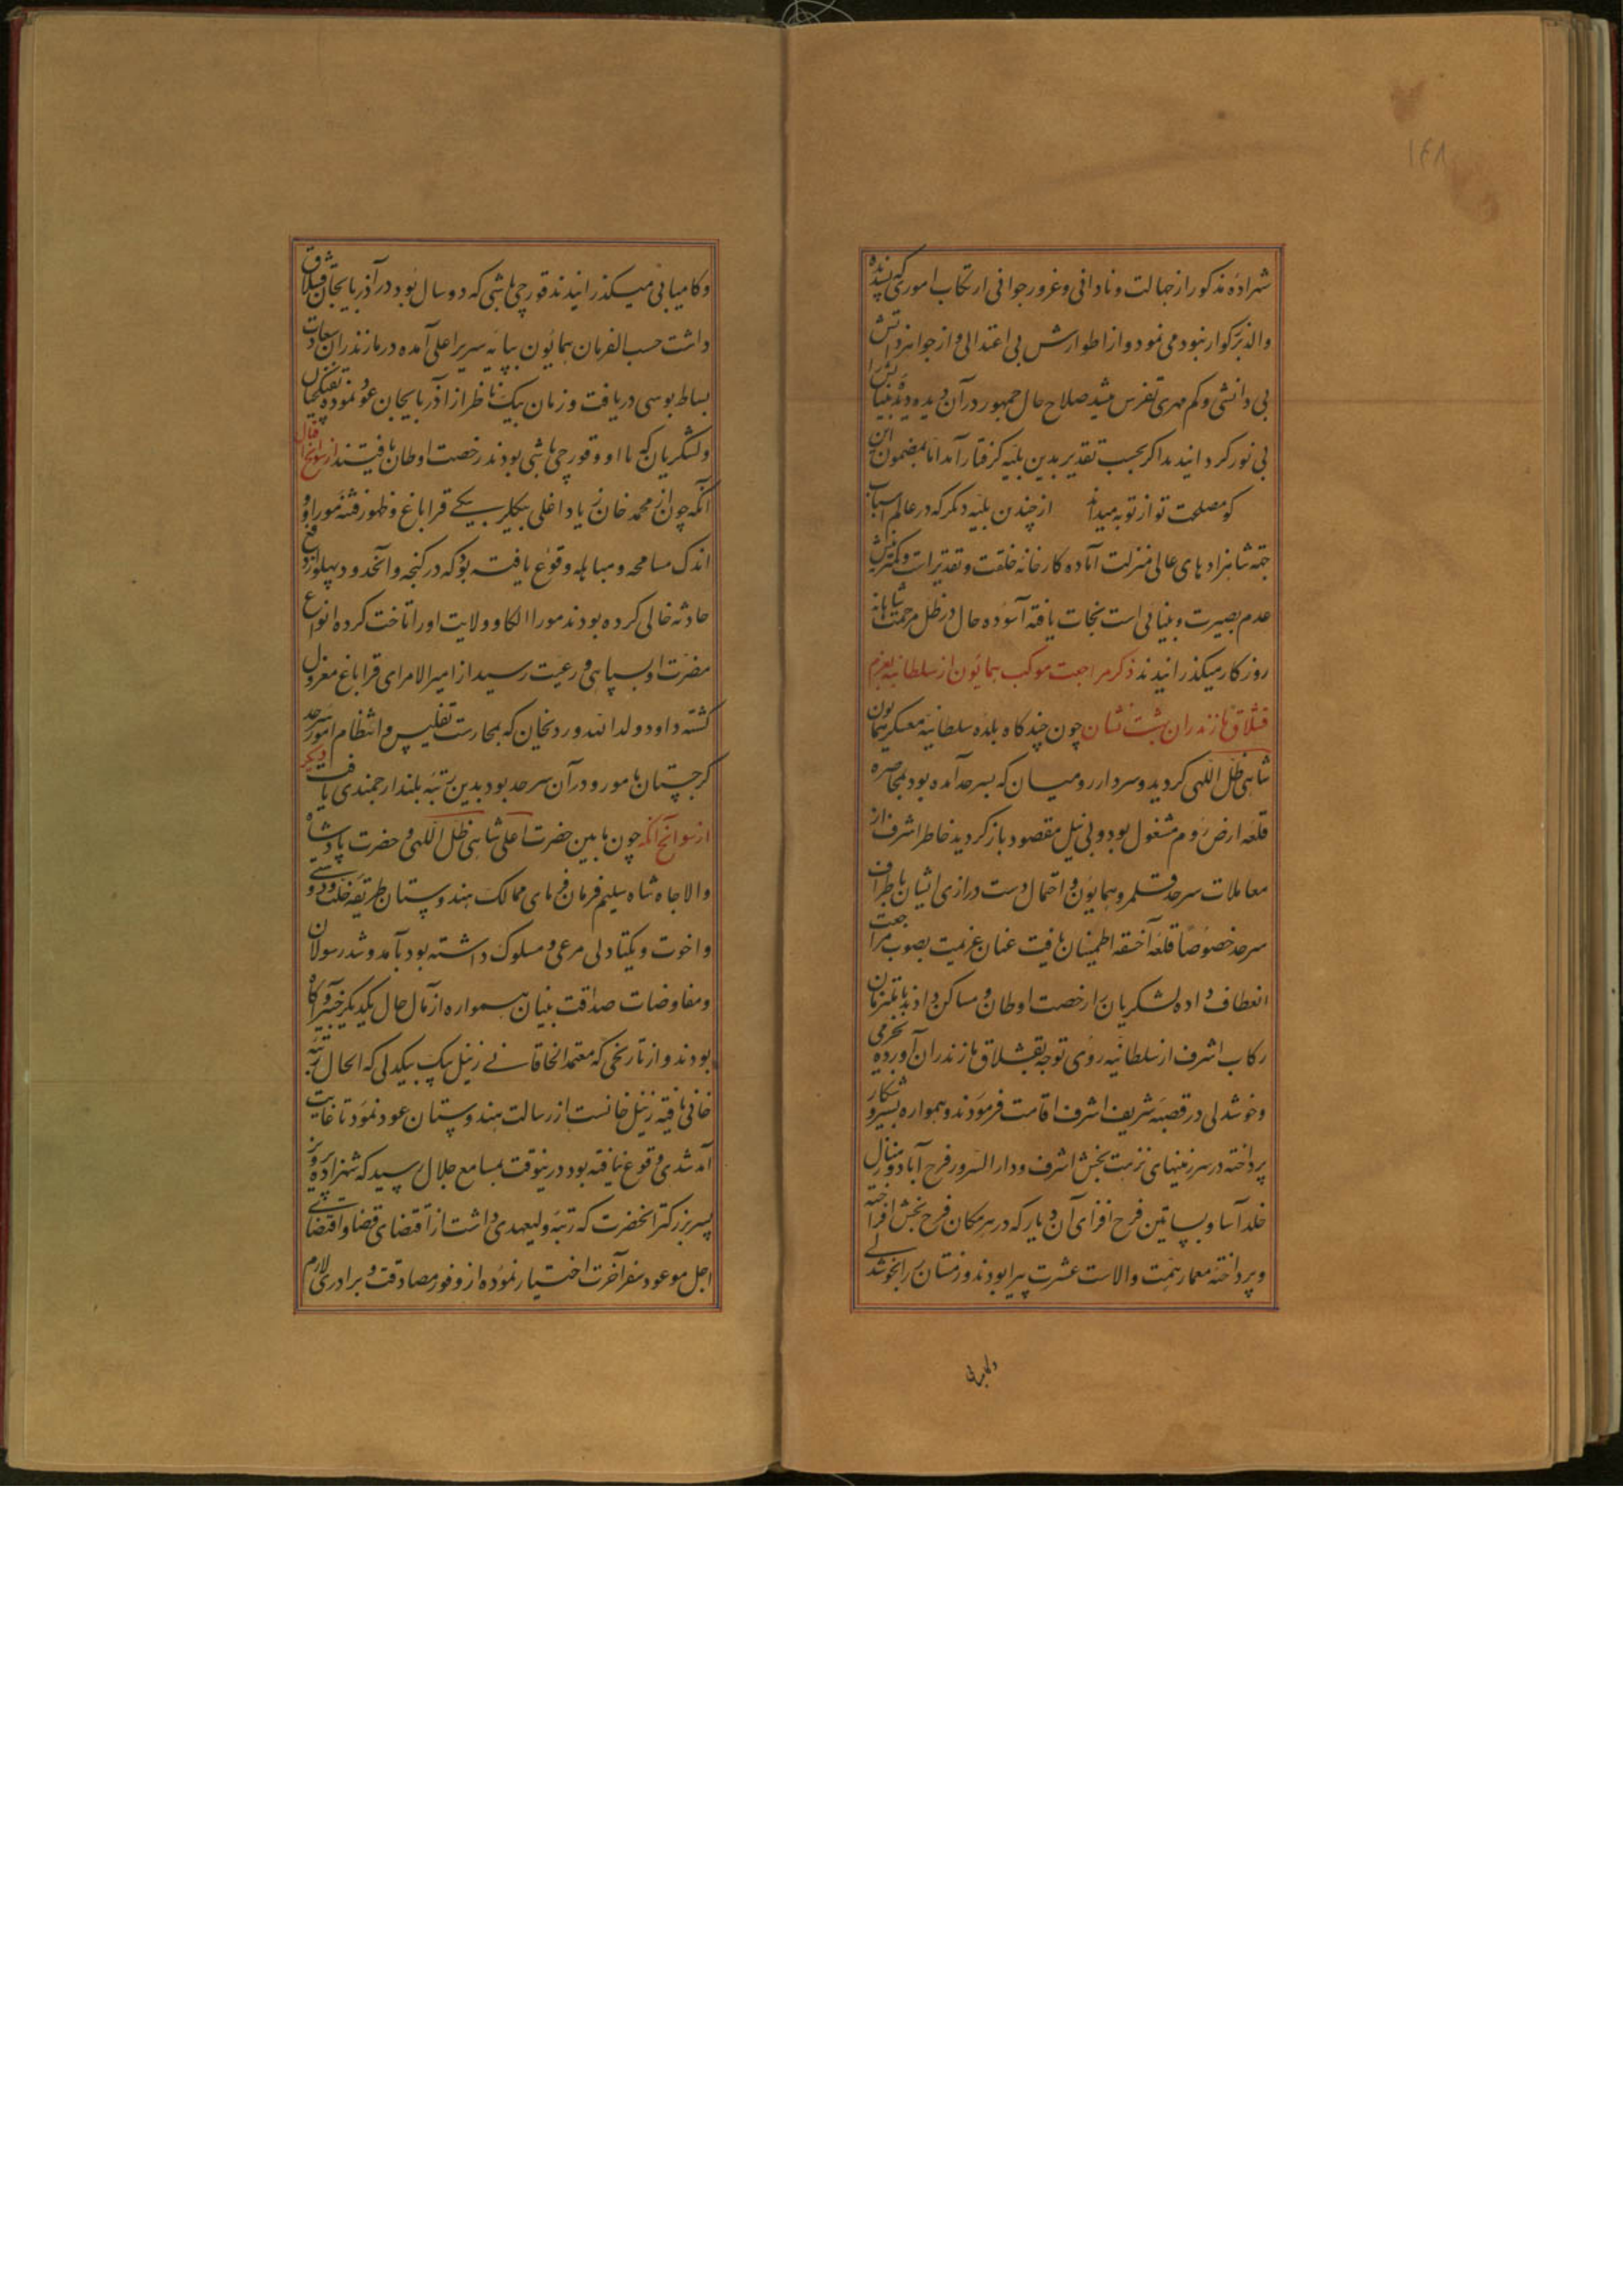 ۱۴۸
شهزاده مذکور از جهالت و نادانی و غرور جوانی ارتکاب اموری که پسندیده
والد بزرگوار نبود می نمود و از اطوارش بی اعتدالی و از جوانمردانش
بی دانشی و کم مهری تفرس میشد صلاح حال جمهور در آن دیده دیده بیناش را
بی نور گردانیدند اگر بحسب تقدیر بدین بلیه گرفتار آمد اما بمضمون این
کو مصلحت تو از تو به میداند از چندین بلیه دیگر که در عالم اسباب
جهة شاهزادهای عالی منزلت آماده کارخانه خلقت و تقدیر است و کمترینش
عدم بصیرت و بینائی است نجات یافته آسوده حال در ظل مرحمت شاهانه
روزگار میگذرانیدند ذکر مراجعت موکب همایون از سلطانیه بعزم
قشلاق مازندران بهشت نشان چون چند گاه بلده سلطانیه معسکر همایون
شاهی ظل اللهی گردید و سردار رومیان که بسرحد آمده بود بمحاصره
قلعه ارض روم مشغول بود و بی نیل مقصود باز گردید خاطر اشرف از
معاملات سرحد قلمرو همایون و احتمال دست درازی ایشان باطراف
سرحد خصوصا قلعه آخسقه اطمینان یافت عنان عزیمت بصوب مراجعت
انعطاف داده لشکریان را رخصت اوطان و مساکن داد ند با ملتزمان
رکاب اشرف از سلطانیه روی توجه بقشلاق مازندران آورده بخرمی
و خوشدلی در قصبه شریف اشرف اقامت فرمودند و همواره بسیر و شکار
پرداخته در سرزمینهای نزهت بخش اشرف و دار السرور فرح آباد و منازل
خلد آسا و بساتین فرح افزای آن دیار که در هر مکان فرح بخش افراخته
و پرداخته معمار همت والاست عشرت پیرا بودند و زمستان را بخوشدلی
و کامرانی
و کامیابی میگذرانیدند قورچی باشی که دو سال بود در آذربایجان قشلاق
داشت حسب الفرمان همایون بپایه سریر اعلی آمده در مازندران سعادت
بساط بوسی دریافت و زمان بیک ناظر از آذربایجان عود نموده تفنگچیان
و لشکریان که با او و قورچی باشی بودند رخصت اوطان یافتند از سوانح اقبال
آنکه چون از محمد خان زیاد اغلی بیکلربیکی قراباغ و ظهور فتنه موراو
اندک مسامحه و مساهله وقوع یافته بود که در گنجه و آنحدود پهلو از وقوع
حادثه خالی کرده بودند مورا الکا و ولایت او را تاخت کرده انواع
مضرت او بسپاهی و رعیت رسید از امیر الامرای قراباغ معزول
گشته داود ولد الله ویردیخان که بمحارست تفلیس و انتظام امور سرحد
گرجستان مامور و در آن سرحد بود بدین رتبه بلند ارجمندی یافت دیگر
از سوانح آنکه چون مابین حضرت اعلی شاهی ظل اللهی و حضرت پادشاه
والا جاه شاه سلیم فرمان فرمای ممالک هندوستان طریقه خلت و دوستی
و اخوت و یکتادلی مرعی و مسلوک داشته بود بآمد و شد رسولان
و مفاوضات صداقت بنیان همواره از مآل حال یکدیگر خبیر و آگاه
بودند و از تاریخی که معتمد الخاقانی زینل بیک بیکدلی که الحال رتبه
خانی یافته زینل خانست از رسالت هندوستان عود نمود تا غایت
آمد شدی وقوع نیافته بود درینوقت بمسامع جلال رسید که شهزاده پرویز
پسر بزرگتر آنحضرت که رتبه ولیعهدی داشت از اقتضای قضا و اقتضای
اجل موعود سفر آخرت اختیار نموده از وفور مصادقت و برادری لازم